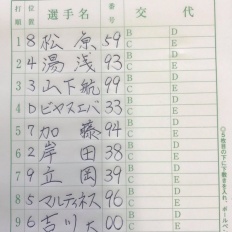 打順 位置 選手名 番号 交代
1 8 松原 59 B D C E
2 4 湯浅 93 B D C E
3 3 山下航 99 B D C E
4 D ビヤヌエバ 33 B D C E
5 7 加藤 94 B D C E
6 2 岸田 38 B D C E
7 9 立岡 39 B D C E
8 5 マルティネス 96 B D C E
9 6 吉川大 00 B D C E